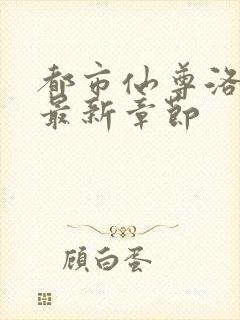 都市仙尊洛
最新章節
顾白蛋